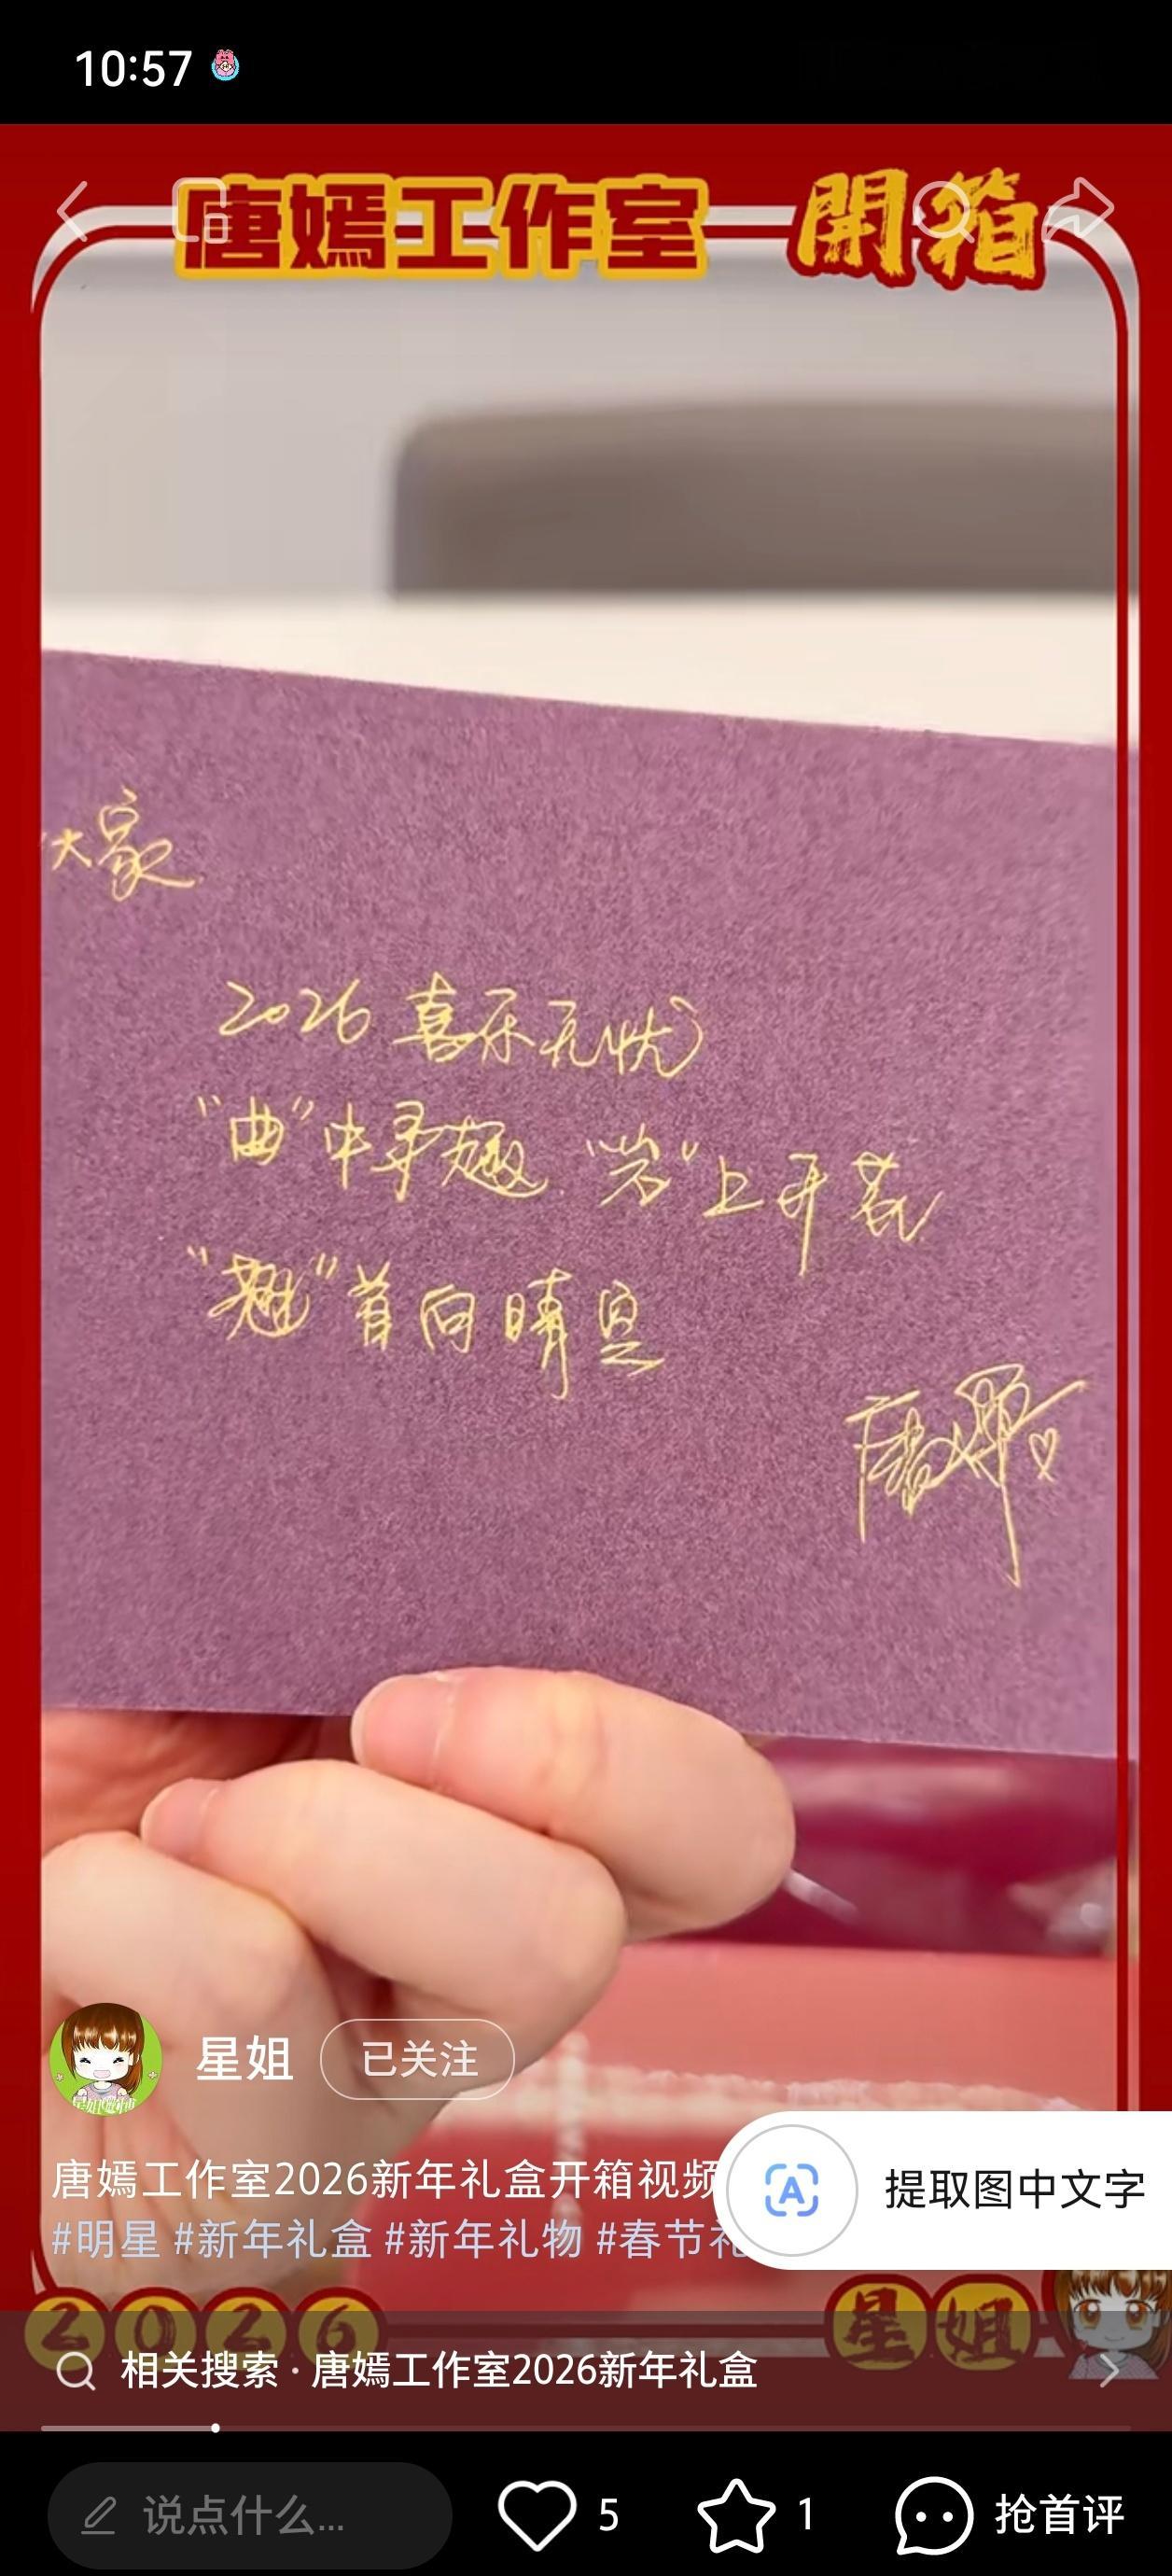 10:57
唐嫣工作室 開箱
大家
2026 喜乐无忧
“曲”中寻趣 “岩”上开花
“翘”首向晴空
唐嫣
星姐 已关注
唐嫣工作室2026新年礼盒开箱视频
#明星 #新年礼盒 #新年礼物 #春节礼
提取图中文字
2026 星姐
相关搜索 · 唐嫣工作室2026新年礼盒
说点什么... 5 1 抢首评